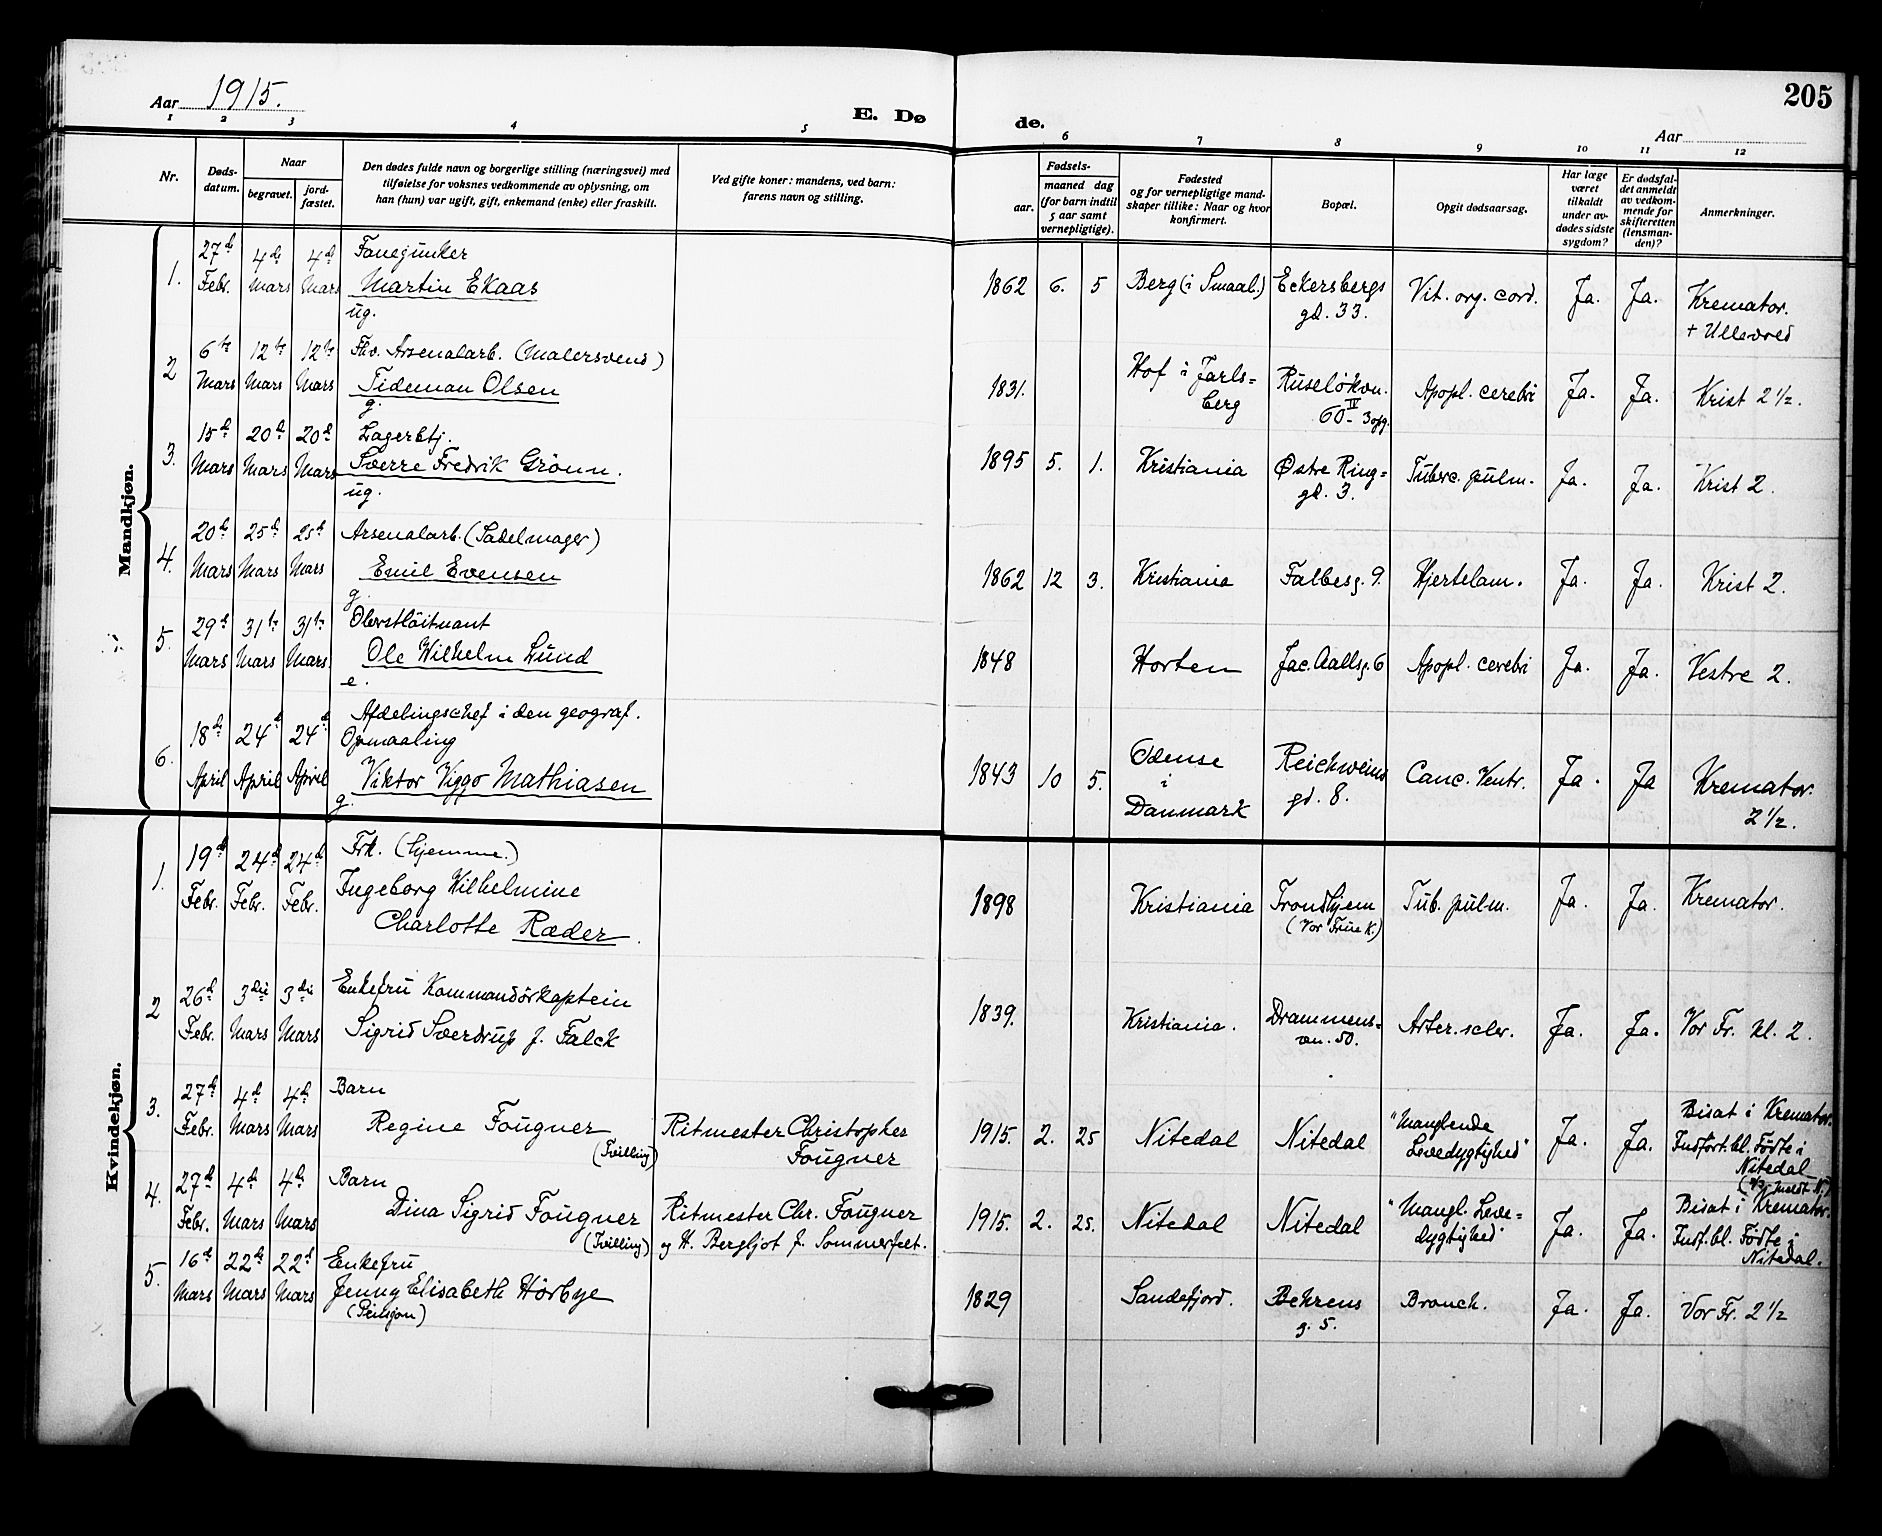 Aar 1915.
E. Døde.
205
Aar
1 2 3 4 5 6 7 8 9 10 11 12
Nr.
Døds-datum.
Naar
begravet.
jord-fæstet.
Den dødes fulde navn og borgerlige stilling (næringsvei) med
tilføielse for voksnes vedkommende av oplysning, om
han (hun) var ugift, gift, enkemand (enke) eller fraskilt.
Ved gifte koner: mandens, ved barn:
farens navn og stilling.
Fødsels-
aar.
maaned dag
(for barn indtil
5 aar samt
vernepligtige).
Fødested
og for vernepligtige mand-
skaper tillike: Naar og hvor
konfirmert.
Bopæl.
Opgit dødsaarsag.
Har læge
været
tilkaldt
under av-
dødes sidste
sygdom?
Er dødsfal-
det anmeldt
av vedkom-
mende for
skifteretten
(lensman-
den)?
Anmerkninger.
Mandkjøn.
1. 27d Febr. 4de Mars 4de Mars
Fanejunker
Martin Ekaas
ug.
1862 6. 5 Berg (i Smaal.) Eckersbergs
gd. 33.
Vit. org. cord. Ja. Ja. Kremator.
+ Ullevold
2 6te Mars 12te Mars 12te Mars
Fhv. Arsenalarb. (Malersvend)
Tideman Olsen
g.
1831. Hof i Jarls=
berg
Ruseløkvn.
60 IV - 3opg.
Apopl. cerebri Ja. Ja. Krist 2 1/2.
3. 15d Mars 20d Mars 20d Mars
Lagerbtj.
Sverre Fredrik Grönn.
ug.
1895 5. 1. Kristiania Østre Ring=
gd. 3.
Tuberc. pulm. Ja. Ja. Krist 2.
4. 20d Mars 25d Mars 25d Mars
Arsenalarb. (Sadelmager)
Emil Evensen
g.
1862 12 3. Kristiania Falbesg. 9. Hjertelam. Ja. Ja. Krist 2.
5. 29d Mars 31te Mars 31te Mars.
Oberstlöitnant
Ole Wilhelm Lund
e.
1848 Horten Jac. Aallsg. 6 Apopl. cerebri Ja. Ja. Vestre 2.
6. 18d April 24d April 24d April
Afdelingschef i den geograf.
Opmaaling
Viktor Viggo Mathiasen
g.
1843 10 5. Odense
i
Danmark
Reichweins
gd. 8.
Canc. Ventr. Ja. Ja Kremator.
2 1/2.
Kvindekjøn.
1. 19d Febr. 24d Febr. 24d Febr.
Frk. (hjemme.)
Ingeborg Wilhelmine
Charlotte Ræder.
1898 Kristiania Trondhjem
(Vor Frue K.)
Tub. pulm. Ja. Ja. Kremator.
2 26d Febr. 3die Mars 3die Mars
Enkefru Kommandörkaptein
Sigrid Sverdrup f. Falck
1839. Kristiania. Drammens=
vn. 50.
Arter. scler. Ja. Ja. Vor Fr. kl. 2.
3. 27d Febr. 4d Mars 4d Mars
Barn
Regine Fougner
(Tvilling)
Ritmester Christopher
Fougner
1915. 2. 25 Nitedal Nitedal "Manglende
Levedygtighed"
Ja. Ja. Bisat i Kremator.
Indfört. bl. Födte i
Nitedal
4. 27d Febr. 4d Mars 4d Mars
Barn
Dina Sigrid Fougner
(Tvilling)
Ritmester Chr. Fougner
og H. Bergljot f. Sommerfelt.
1915. 2. 25. Nitedal Nitedal "Mangl. Leve=
dygtighed"
Ja. Ja. Bisat i Kremator.
Indf. bl. Födte i
Nitedal.
5. 16d Mars 22d Mars 22d Mars
Enkefru
Jenny Elisabeth Hörbye
(Pensjon)
1829 Sandefjord. Behrens
g. 5.
Bronch. Ja. Ja. Vor Fr. 2 1/2